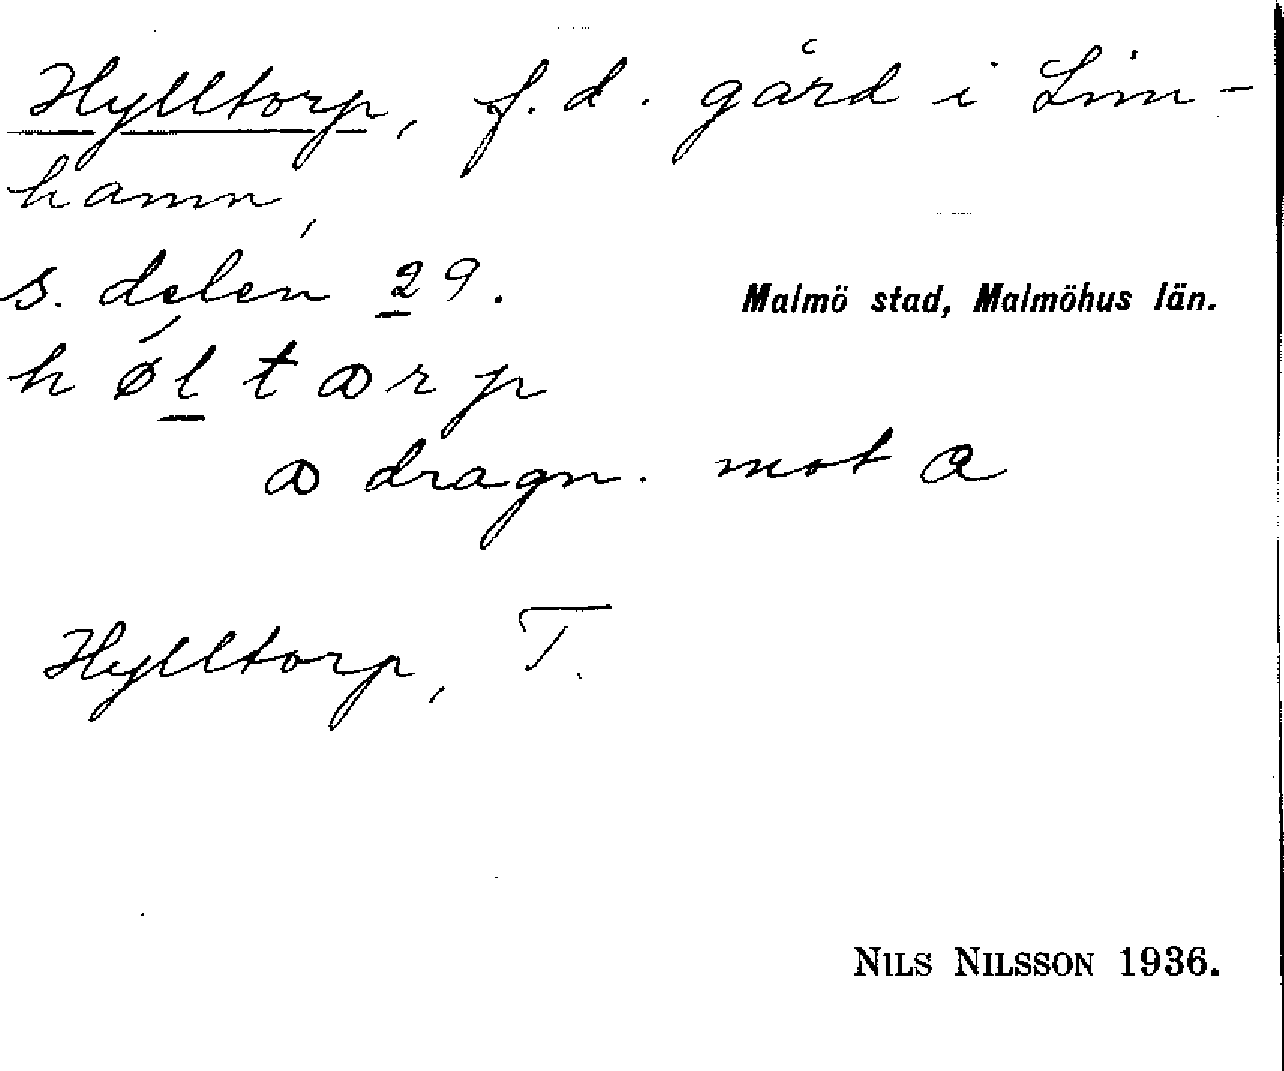 Hylltorp, f.d. gård i Lim-
hamn,
s. delen 29.
Malmö stad, Malmöhus län.
h ǿl t ꝏ r p
ꝏ dragn. mot a
Hylltorp, T.
NILS NILSSON 1936.